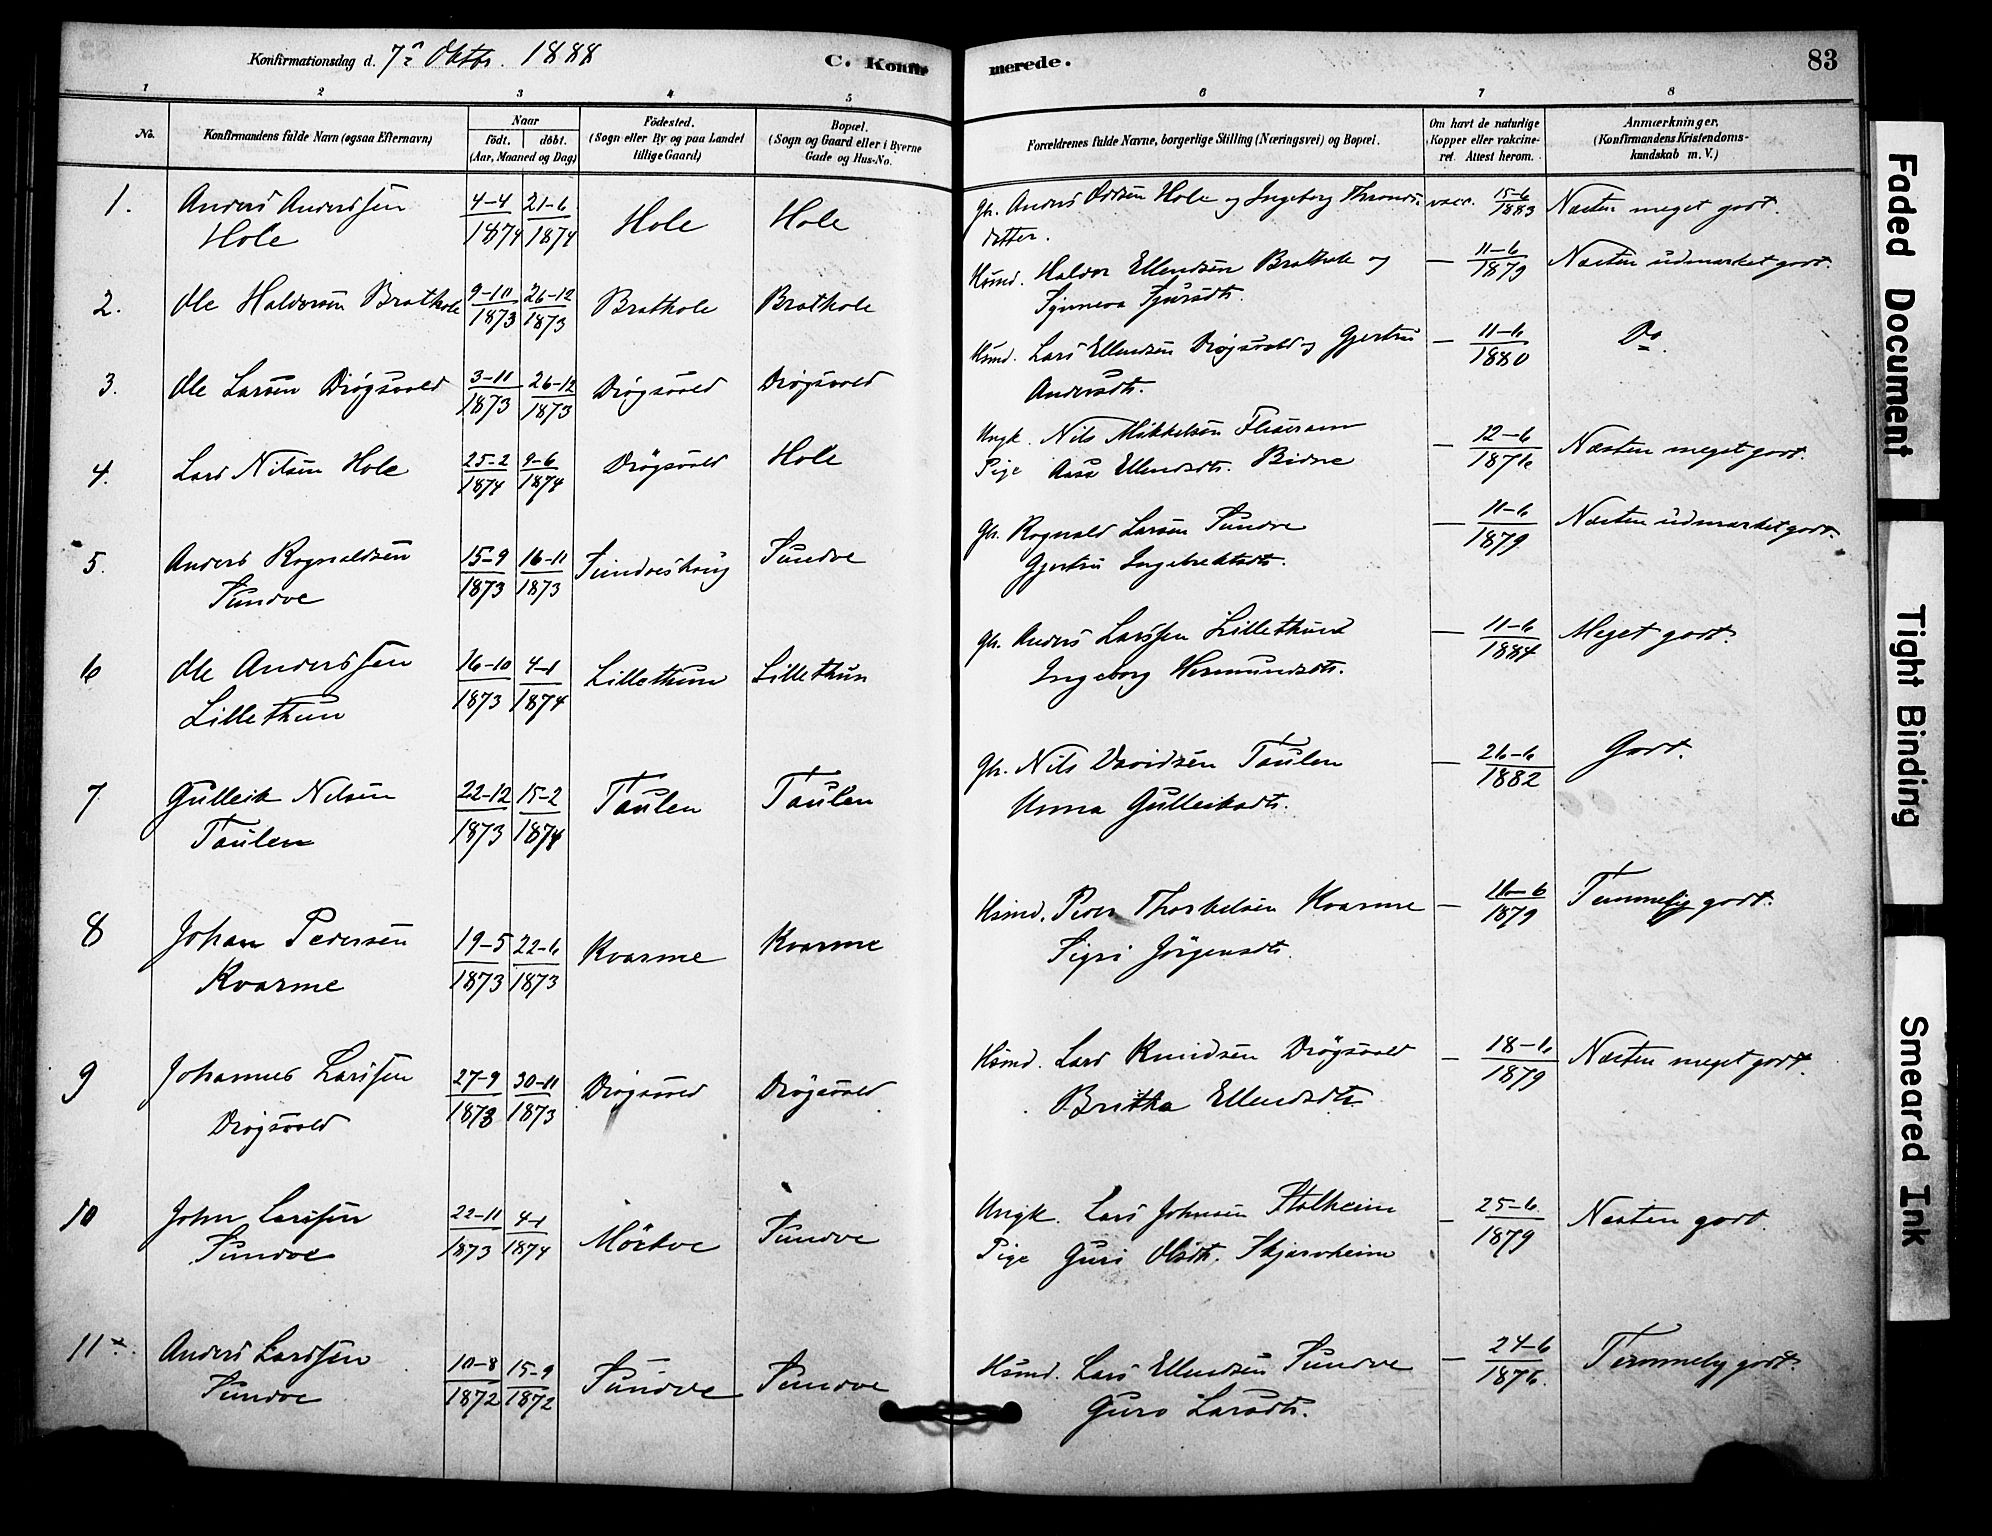 Konfirmationsdag d. 7de Oktbr. 1888
C. Konfirmerede.
83
1 2 3 4 5 6 7 8
No.
Konfirmandens fulde Navn (ogsaa Efternavn)
Naar
födt. döbt.
(Aar, Maaned og Dag)
Födested.
(Sogn eller By og paa Landet
tillige Gaard)
Bopæl.
(Sogn og Gaard eller i Byerne
Gade og Hus-No.
Forældrenes fulde Navne, borgerlige Stilling (Næringsvei) og Bopæl.
Om havt de naturlige
Kopper eller vakcine-
ret. Attest herom.
Anmærkninger,
(Konfirmandens Kristendoms-
kundskab m. V.)
1. Anders Andersſen 4-4 21-6 Hole Hole Gbr. Anders Oddsen Hole og Ingeborg Thronds- vacc. 15-6 Næsten meget godt.
Hole 1874 1874 datter. 1883
2. Ole Haldorsen Brathole 9-10 26-12 Brathole Brathole Husmd. Haldor Ellendsen Brathole og — 11-6 Næsten udmærket godt.
1873 1873 Synneva Sjursdtr. 1879
3. Ole Larsen Drøgsvold 3-11 26-12 Drøgsvold Drøgsvold Husmd. Lars Ellendsen Drøgsvold og Gjertru — 11-6 Do
1873 1873 Andersdtr. 1880
4. Lars Nilsen Hole 25-2 9-6 Drøgsvold Hole Ungk. Nils Mikkelsen — 12-6 Næsten meget godt.
1874 1874 Pige Aasa Ellendsdtr. Bidne 1876
5. Anders Rognaldsen 15-9 16-11 Sundveshaug Sundve Gbr. Rognald Larsen Sundve — 11-6 Næsten udmærket godt.
Sundve 1873 1873 Gjertru Ingebrektsdtr. 1879
6 Ole Andersſen 16-10 4-1 Lillethun Lillethun Gbr. Anders Larsſen Lillethun — 11-6 Meget godt.
Lillethun 1873 1874 Ingeborg Hermundsdtr. 1884
7 Gulleik Nilsen 22-12 15-2 Taulen Taulen Gbr. Nils Davidsen Taulen — 26-6 Godt.
Taulen 1873 1874 Unna Gulleiksdtr. 1882
8 Johan Pedersen 19-5 22-6 Kvarme Kvarme Husmd. Peder Thorkelsen Kvarme — 11-6 Temmelig godt.
Kvarme 1873 1873 Sigri Jörgensdtr. 1879
9 Johannes Larsſen 27-9 30-11 Drøgsvold Drøgsvold Husmd. Lars Knudsen Drøgsvold — 18-6 Næsten meget godt.
Drøgsvold 1873 1873 Britha Ellendsdtr. 1879
10 John Larsſen 22-11 4-1 Mörkve Sundve Ungk. Lars Johnsen Stalheim — 25-6 Næsten godt.
Sundve 1873 1874 Pige Guri Olsdtr. Skjerveheim 1879
11 Anders Larsſen 10-8 15-9 Sundve Sundve Husmd. Lars Ellendsen Sundve — 24-6 Temmelig godt.
Sundve 1872 1872 Guro Larsdtr. 1876.
Faded Document
Tight Binding
Smeared Ink